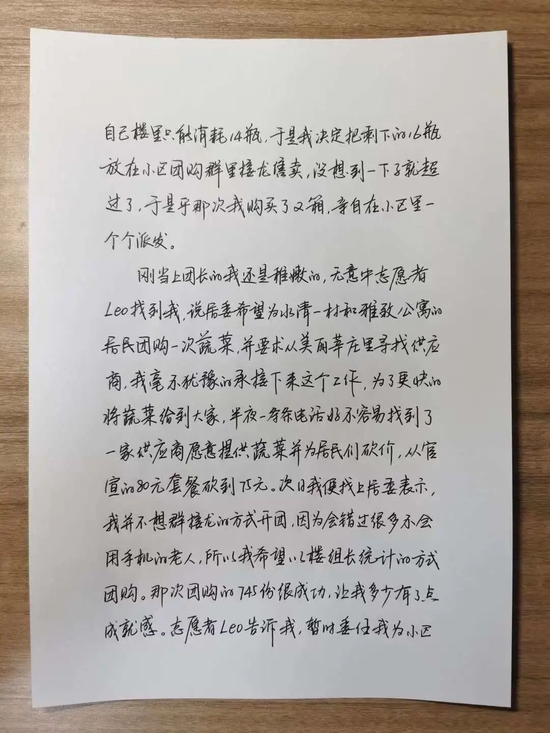 自己楼里只能消耗14瓶，于是我决定把剩下的16瓶
放在小区团购群里接龙售卖，没想到一下子就超
过了，于是乎那次我购买了2箱，亲自在小区里一
个个派发。
刚当上团长的我还是稚嫩的，无意中志愿者
Leo找到我，说居委希望为水清一村和雅致公寓的
居民团购一次蔬菜，并要求从美丽莘庄里寻找供应
商，我毫不犹豫的承接下来这个工作，为了更快的
将蔬菜给到大家，半夜一条条电话好不容易找到了
一家供应商愿意提供蔬菜并为居民们砍价，从官
宣的80元套餐砍到75元。次日我便找上居委表示，
我并不想群接龙的方式开团，因为会错过很多不会
用手机的老人，所以我希望以楼组长统计的方式
团购。那次团购的745份很成功，让我多少有了点
成就感。志愿者Leo告诉我，暂时委任我为小区